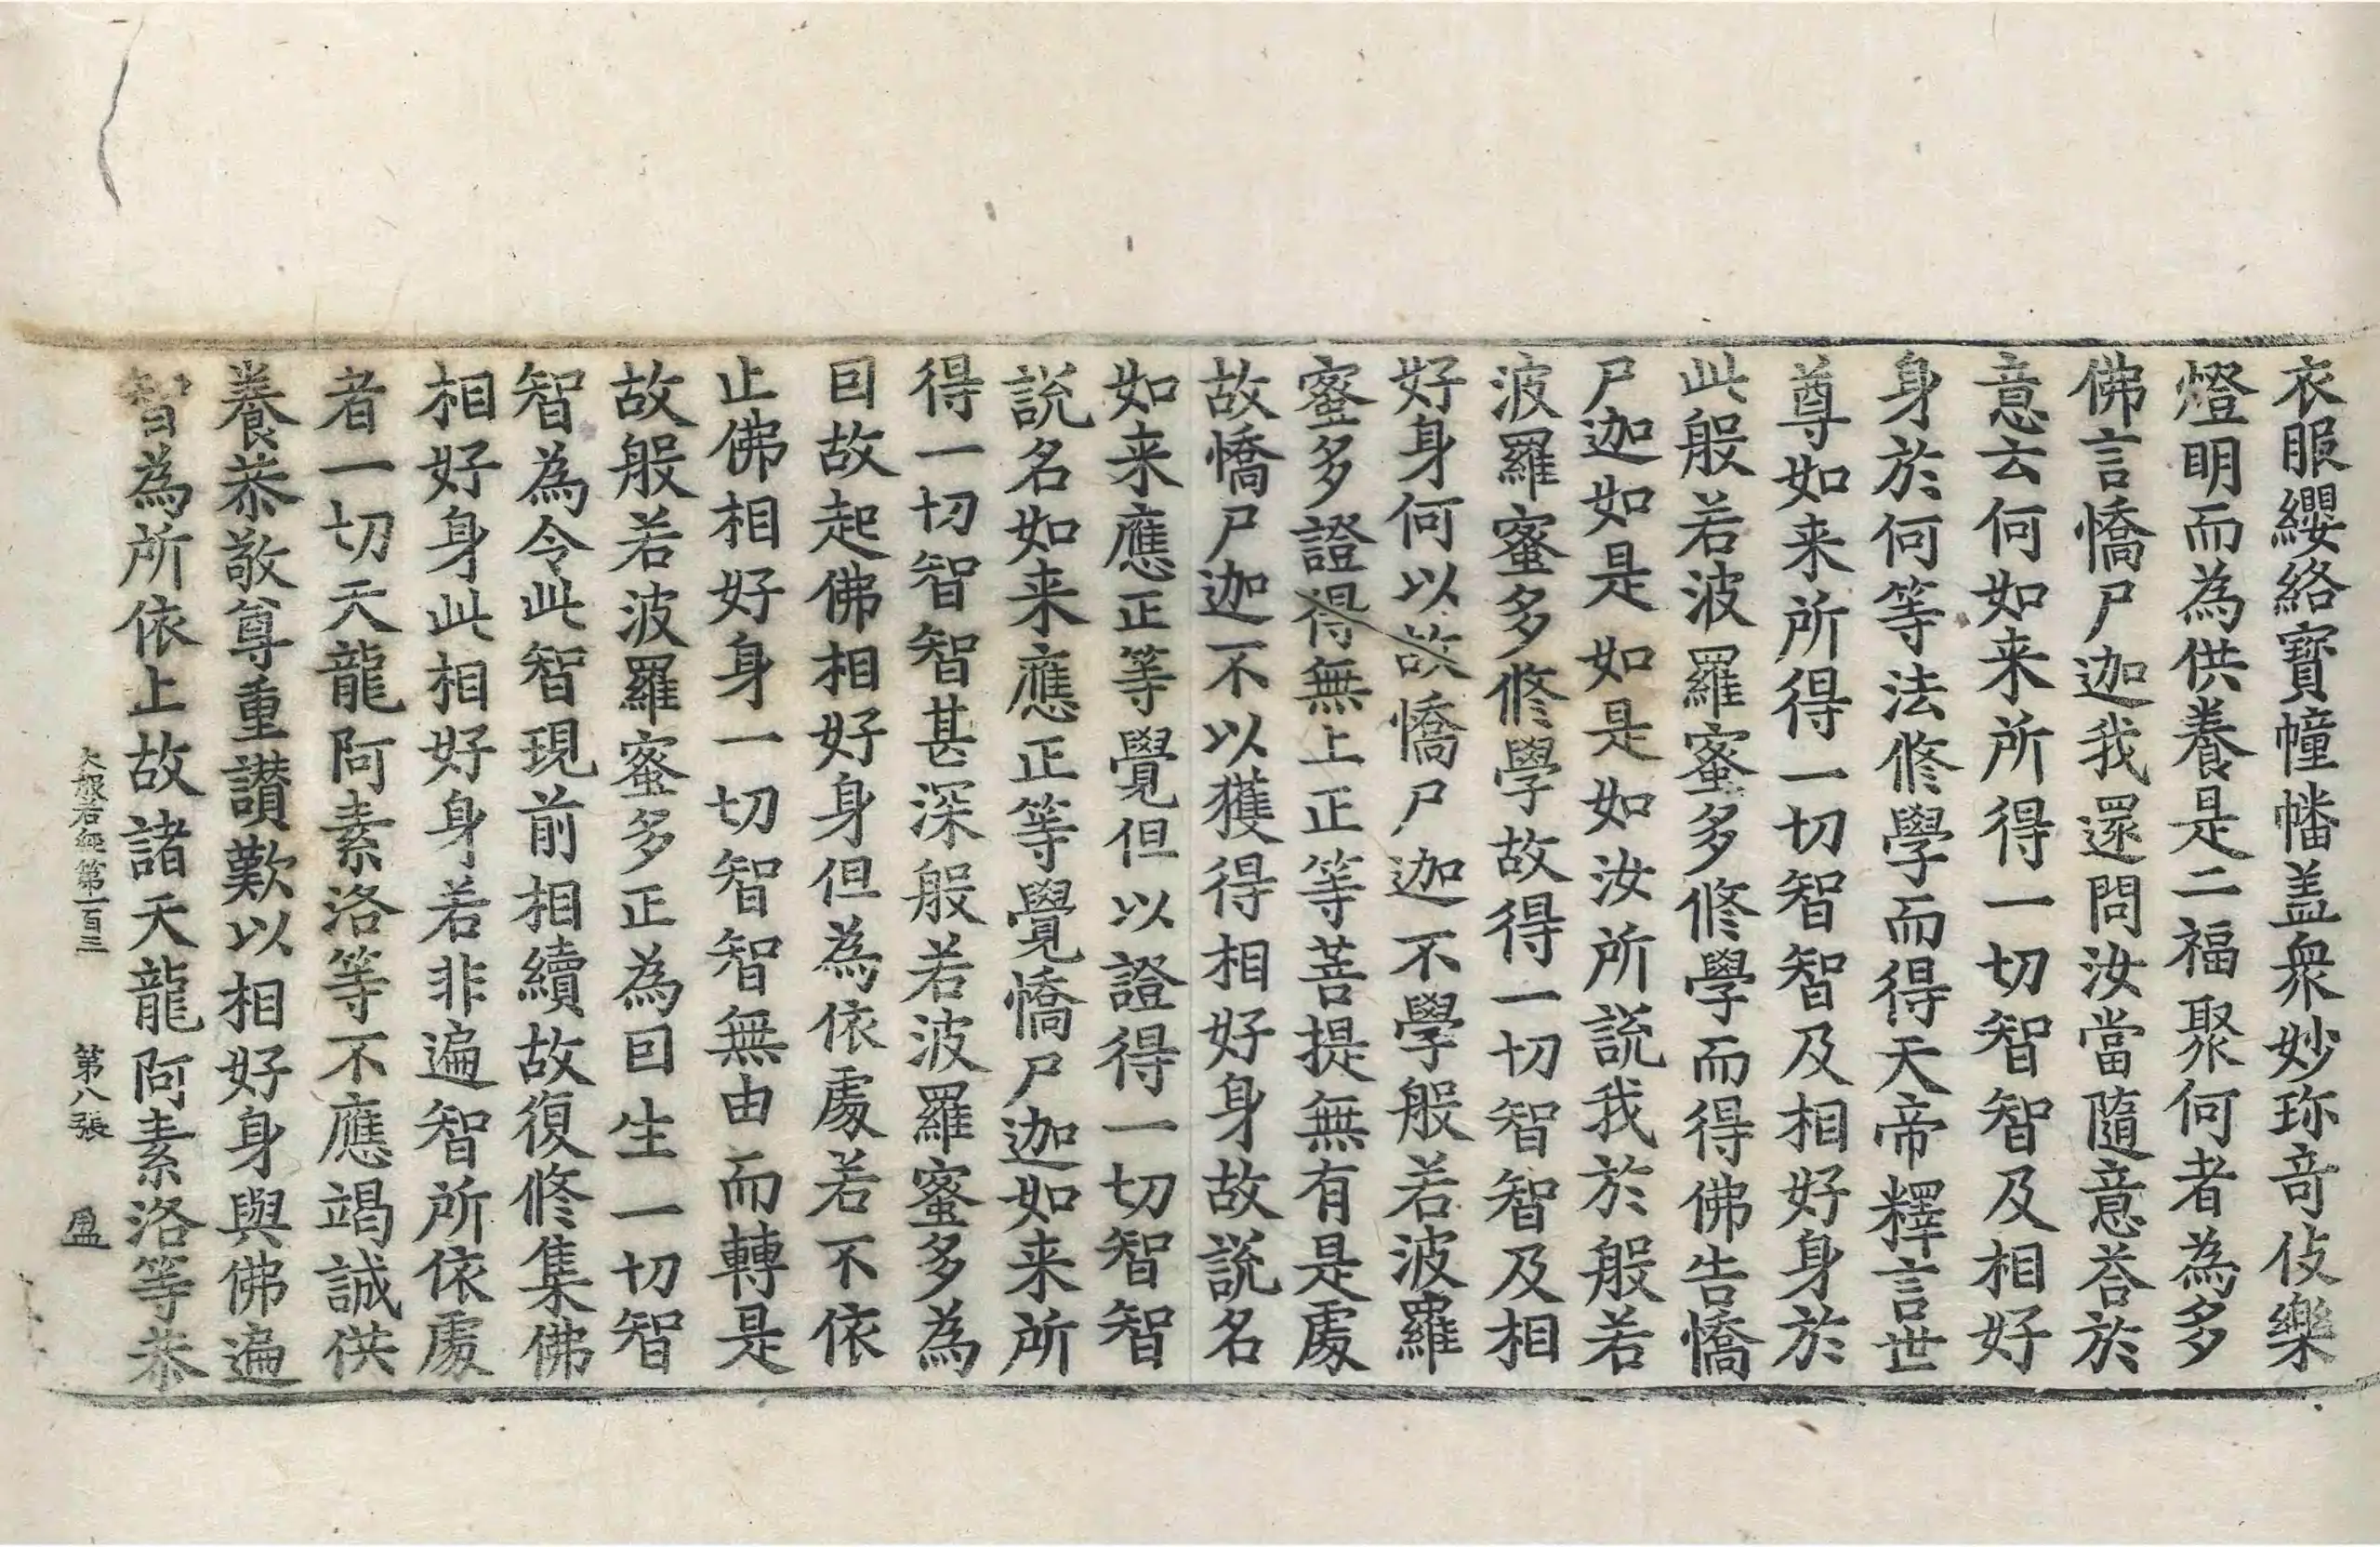 衣服纓絡寶幢幡盖衆妙珎奇伎樂
燈明而為供養是二福聚何者為多
佛言憍尸迦我還問汝當隨意荅於
意云何如来所得一切智智及相好
身於何等法修學而得天帝釋言世
尊如来所得一切智智及相好身於
此般若波羅蜜多修學而得佛告憍
尸迦如是如是如汝所説我於般若
波羅蜜多修學故得一切智智及相
好身何以故憍尸迦不學般若波羅
蜜多證得無上正等菩提無有是處
故憍尸迦不以獲得相好身故説名
如来應正等覺但以證得一切智智
説名如来應正等覺憍尸迦如来所
得一切智智甚深般若波羅蜜多為
囙故起佛相好身但為依處若不依
止佛相好身一切智智無由而轉是
故般若波羅蜜多正為囙生一切智
智為令此智現前相續故復修集佛
相好身此相好身若非遍智所依處
者一切天龍阿素洛等不應竭誠供
養恭敬尊重讃歎以相好身與佛遍
智為所依止故諸天龍阿素洛等恭
大般若經第一百三 第八張 盈